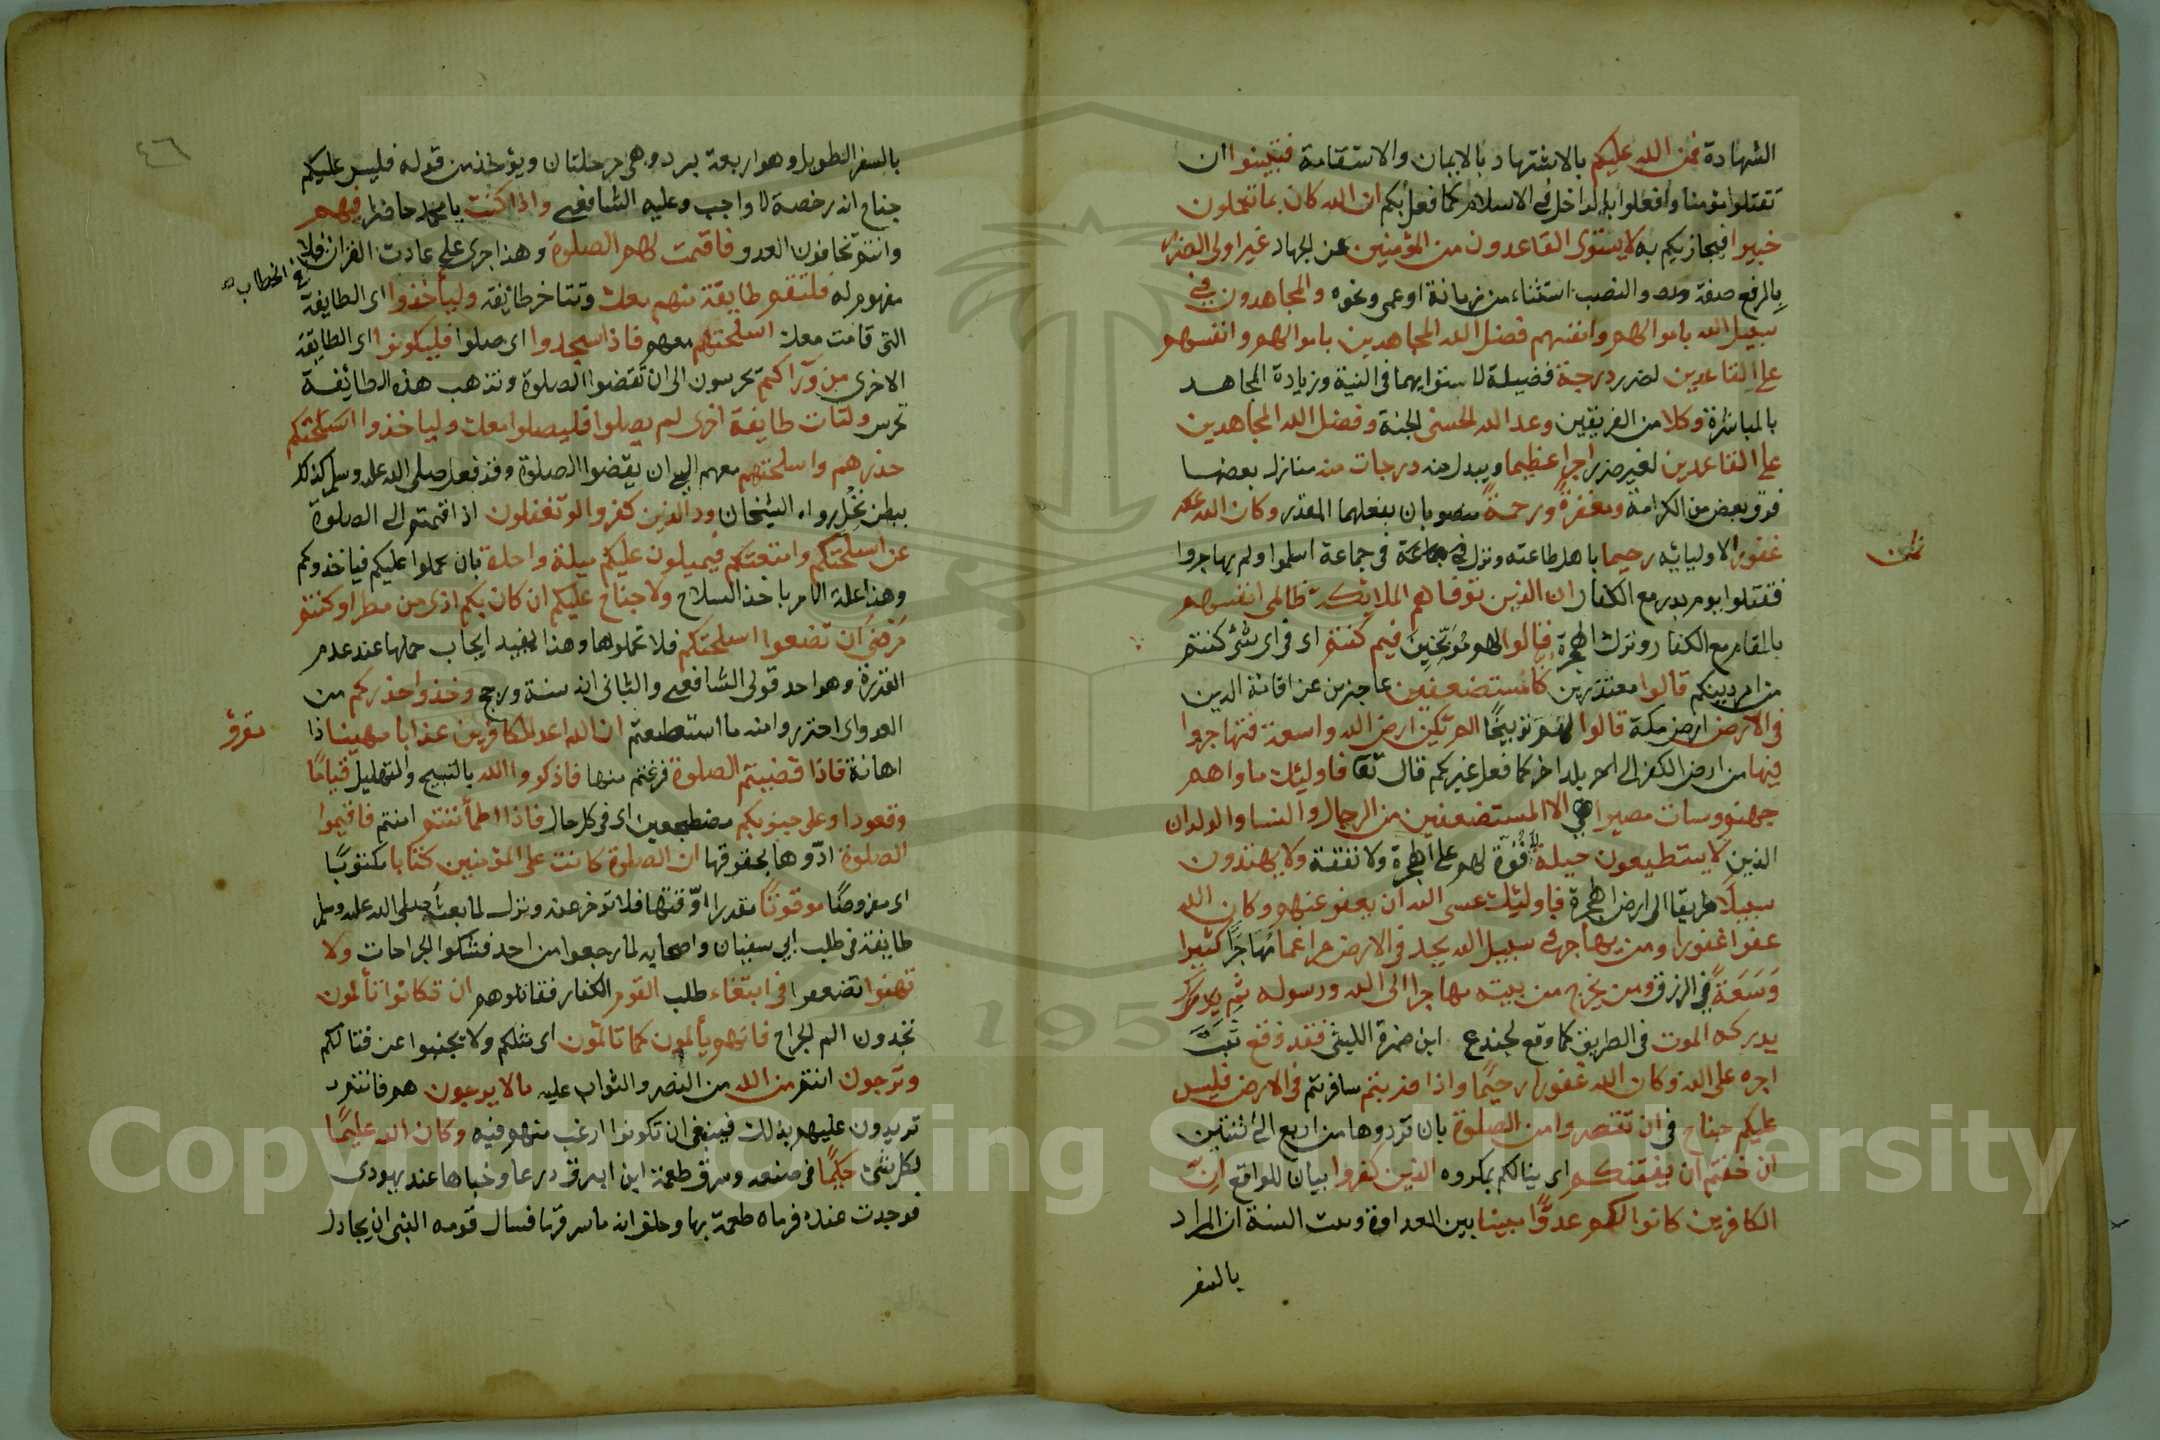 الشهادة فمن الله عليكم بالاشتهاد بالايمان والاستقامة فتبينوا ان
تقتلوا مؤمنا وافعلوا بالداخل في الاسلام كما فعل بكم ان الله كان بما تعملون
خبيرا فيجازيكم به لا يستوى القاعدون من المؤمنين عن الجهاد غير اولى الضرر
بالرفع صفة والنصب استثناء من زمانة او عمى ونحوه والمجاهدون في
سبيل الله باموالهم وانفسهم فضل الله المجاهدين باموالهم وانفسهم
على القاعدين لضرر درجة فضيلة لاستوايهما في النية وزيادة المجاهد
بالمباشرة وكلا من الفريقين وعد الله الحسنى الجنة وفضل الله المجاهدين
على القاعدين لغير ضرر اجرا عظيما ويبدل منه درجات منه منازل بعضها
فوق بعض من الكرامة ومغفرة ورحمة منصوبان بفعلهما المقدر وكان الله
غفورا لاوليائه رحيما باهل طاعته ونزل في جماعة اسلموا ولم يهاجروا
فقتلوا يوم بدر مع الكفار ان الذين توفاهم الملائكة ظالمى انفسهم
بالمقام مع الكفار وترك الهجرة قالوا لهم موبخين فيم كنتم اى في اى شئ كنتم
من امر دينكم قالوا معتذرين كنا مستضعفين عاجزين عن اقامة الدين
في الارض ارض مكة قالوا لهم توبيخا الم تكن ارض الله واسعة فتهاجروا
فيها من ارض الكفر الى بلد اخر كما فعل غيركم قال تعا فاولئك ماواهم
جهنم وساءت مصيرا هي الا المستضعفين من الرجال والنساء والولدان
الذين لا يستطيعون حيلة لا قوة لهم على الهجرة ولا نفقة ولا يهتدون
سبيلا طريقا الى ارض الهجرة فاولئك عسى الله ان يعفو عنهم وكان الله
عفوا غفورا ومن يهاجر في سبيل الله يجد في الارض مراغما مهاجرا كثيرا
وسعة في الرزق ومن يخرج من بيته مهاجرا الى الله ورسوله ثم
يدركه الموت في الطريق كما وقع لجندع ابن ضمرة الليثى فقد وقع ثبت
اجره على الله وكان الله غفورا رحيما واذا ضربتم سافرتم في الارض فليس
عليكم جناح في ان تقصروا من الصلوة بان تردوها من اربع الى اثنتين
ان خفتم ان يفتنكم اى ينالكم بمكروه الذين كفروا بيان للواقع ان
الكافرين كانوا لكم عدوا مبينا بين العداوة وبينت السنة ان المراد
بالسفر
ثمن
٤٦
بالسفر الطويل وهو اربعة برد وهي مرحلتان ويؤخذ من قوله فليس عليكم
جناح انه رخصة لا واجب وعليه الشافعى واذا كنت يا محمد حاضرا فيهم
وانتم تخافون العدو فاقمت لهم الصلوة وهذا جرى على عادت القران فلا
في الخطاب
مفهوم له فلتقم طايفة منهم معك وتتاخر طائفة وليأخذوا اى الطايفة
التى قامت معك اسلحتهم معهم فاذا سجدوا اى صلوا فليكونوا اى الطايفة
الاخرى من ورآئكم يحرسون الى ان تقضوا الصلوة وتذهب هذه الطائفة
تحرس ولتات طايفة اخرى لم يصلوا فليصلوا معك ولياخذوا اسلحتكم
حذرهم واسلحتهم معهم الى ان يقضوا الصلوة وقد فعل صلى الله عليه وسلم كذلك
ببطن نخل رواه الشيخان ود الذين كفروا لو تغفلون اذا قمتم الى الصلوة
عن اسلحتكم وامتعتكم فيميلون عليكم ميلة واحدة بان يحملوا عليكم فياخذوكم
وهذا علة الامر باخذ السلاح ولا جناح عليكم ان كان بكم اذى من مطر او كنتم
مرضى ان تضعوا اسلحتكم فلا تحملوها وهذا يفيد ايجاب حملها عند عدم
القدرة وهو احد قولى الشافعى والثانى انه سنة ورجح وخذوا حذركم من
العدو اى احترزوا منه ما استطعتم ان الله اعد للكافرين عذابا مهينا ذا
اهانة فاذا قضيتم الصلوة فرغتم منها فاذكروا الله بالتسبيح والتهليل قياما
وقعودا وعلى جنوبكم مضطجعين اى في كل حال فاذا اطمأننتم امنتم فاقيموا
الصلوة ادوها بحقوقها ان الصلوة كانت على المؤمنين كتابا مكتوبا
اى مفروضا موقوتا مقدرا وقتها فلا تؤخر عنه ونزل لما بعث صلى الله عليه وسلم
طايفة في طلب ابي سفيان واصحابه لما رجعوا من احد فشكوا الجراحات ولا
تهنوا تضعفوا في ابتغاء طلب القوم الكفار فقاتلوهم ان تكانوا تألمون
تجدون الم الجراح فانهم يألمون كما تالمون اى مثلكم ولا يجبنوا عن قتالكم
وترجون انتم من الله من النصر والثواب عليه مالا يرجون هم فانتم
تزيدون عليهم بذلك فينبغى ان تكونوا ارغب منهم فيه وكان الله عليما
بكل شئ حكيما في صنعه وسرق طعمة ابن ابيرق درعا وخباها عند يهودى
فوجدت عنده فرماه طعمة بها وحلف انه ما سرقها فسال قومه النبي ان يجادل
Copyright © King Saud University
195